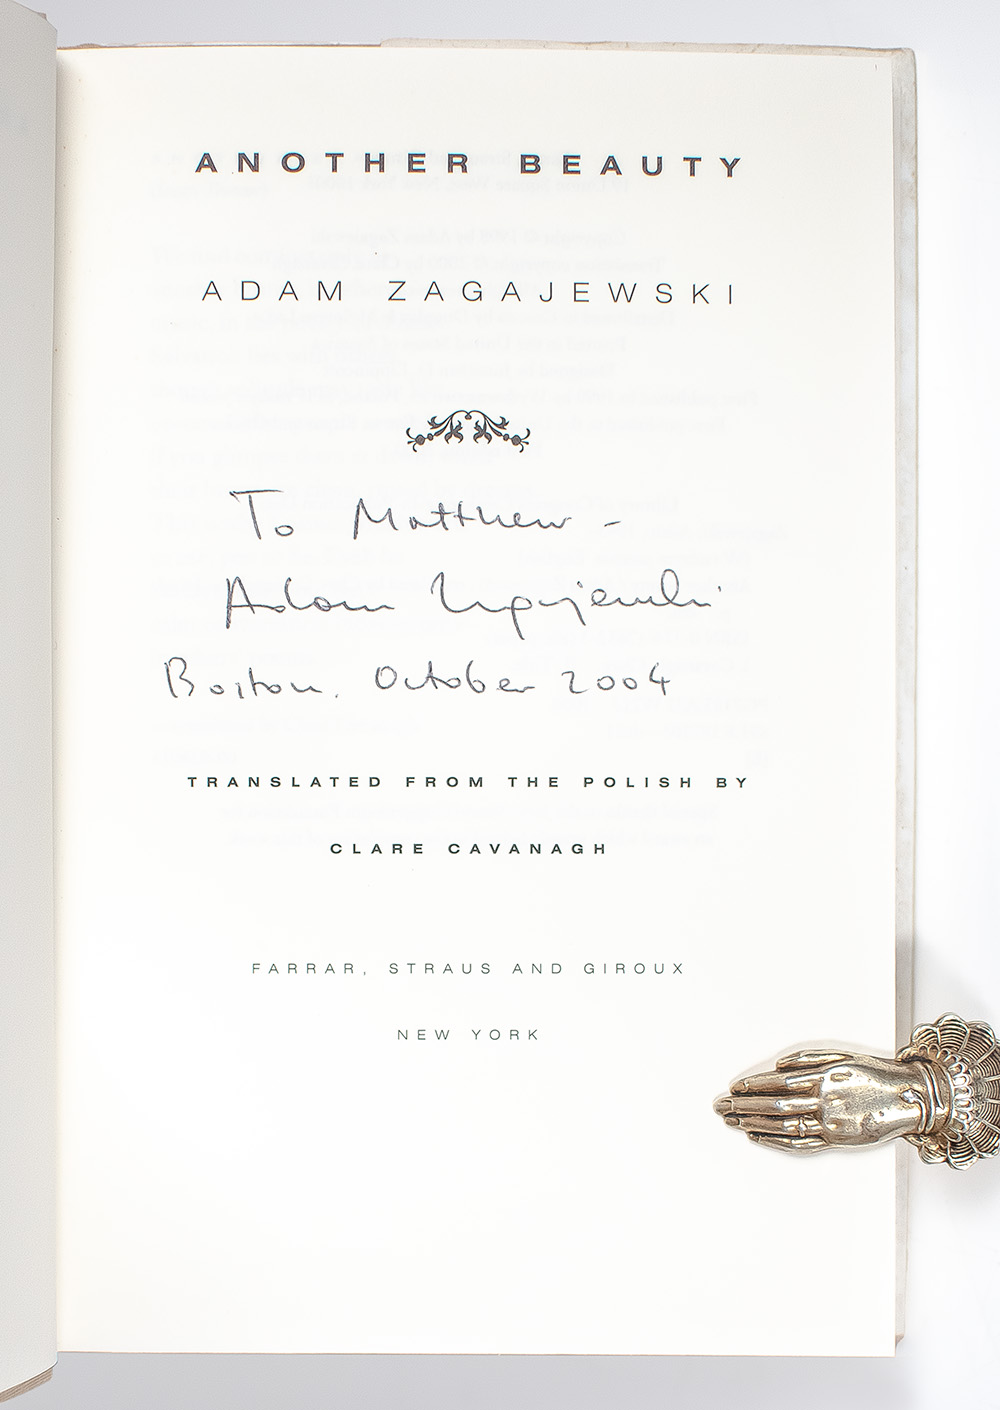 ANOTHER BEAUTY
ADAM ZAGAJEWSKI
To Matthew -
Adam Zagajewski
Boston, October 2004
TRANSLATED FROM THE POLISH BY
CLARE CAVANAGH
FARRAR, STRAUS AND GIROUX
NEW YORK